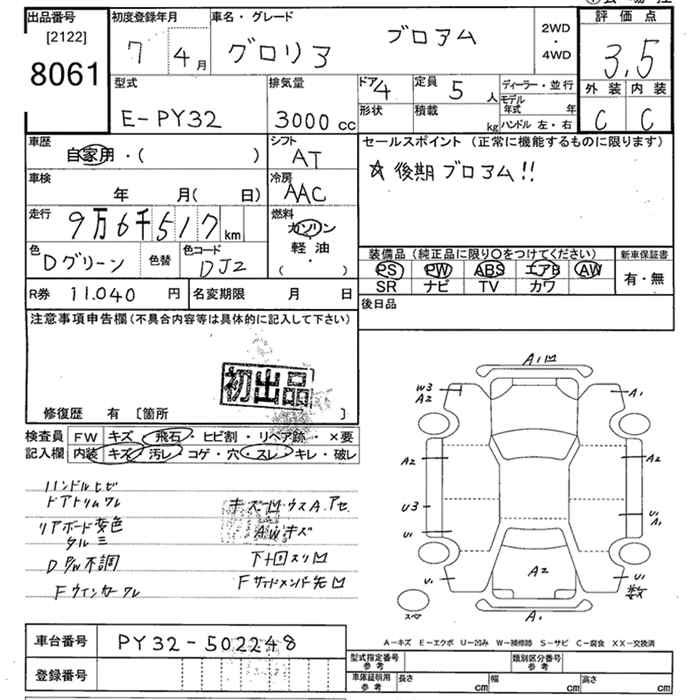 出品番号
[2122]
8061
初度登録年月
7 4 月
車名・グレード
グロリア ブロアム
2WD
・
4WD
評価点
3.5
外装 内装
C C
型式
E-PY32
排気量
3000 CC
ドア 4
定員 5 人
形状
積載 kg
ディーラー・並行
モデル年式 年
ハンドル 左・右
車歴
自家用・( )
シフト
AT
車検
年 月( 日)
冷房
AAC
走行
9万6千517 km
燃料
ガソリン
軽油
( ・ )
色
Dグリーン
色替
色コード
DJ2
R券 11.040 円
名変期限 月 日
セールスポイント (正常に機能するものに限ります)
☆後期ブロアム!!
装備品 (純正品に限り○をつけてください)
PS PW ABS エアB AW
SR ナビ TV カワ
新車保証書
有・無
後日品
注意事項申告欄 (不具合内容等は具体的に記入して下さい)
初出品
修復歴 有 [箇所 ]
検査員 記入欄
FW キズ・飛石・ヒビ割・リペア跡・×要
内装 キズ・汚レ・コゲ・穴・スレ・キレ・破レ
ハンドルヒビ
ドアトリムワレ
リアボード変色
タルミ
D P/W不調
Fウィンカーワレ
キズ凹ウスA.アセ
AWキズ
下廻スリ凹
Fサイドメンバー先凹
A1凹
W3
A2
A1
A2
A2
U3
U1
U1
A1
U1
A2
U1
数
スペア
A1
A-キズ E-エクボ U-凹み W-補修跡 S-サビ C-腐食 XX-交換済
車台番号 PY32-502248
登録番号
型式指定番号
参考
類別区分番号
参考
車庫証明用
参考
長さ cm 幅 cm 高さ cm